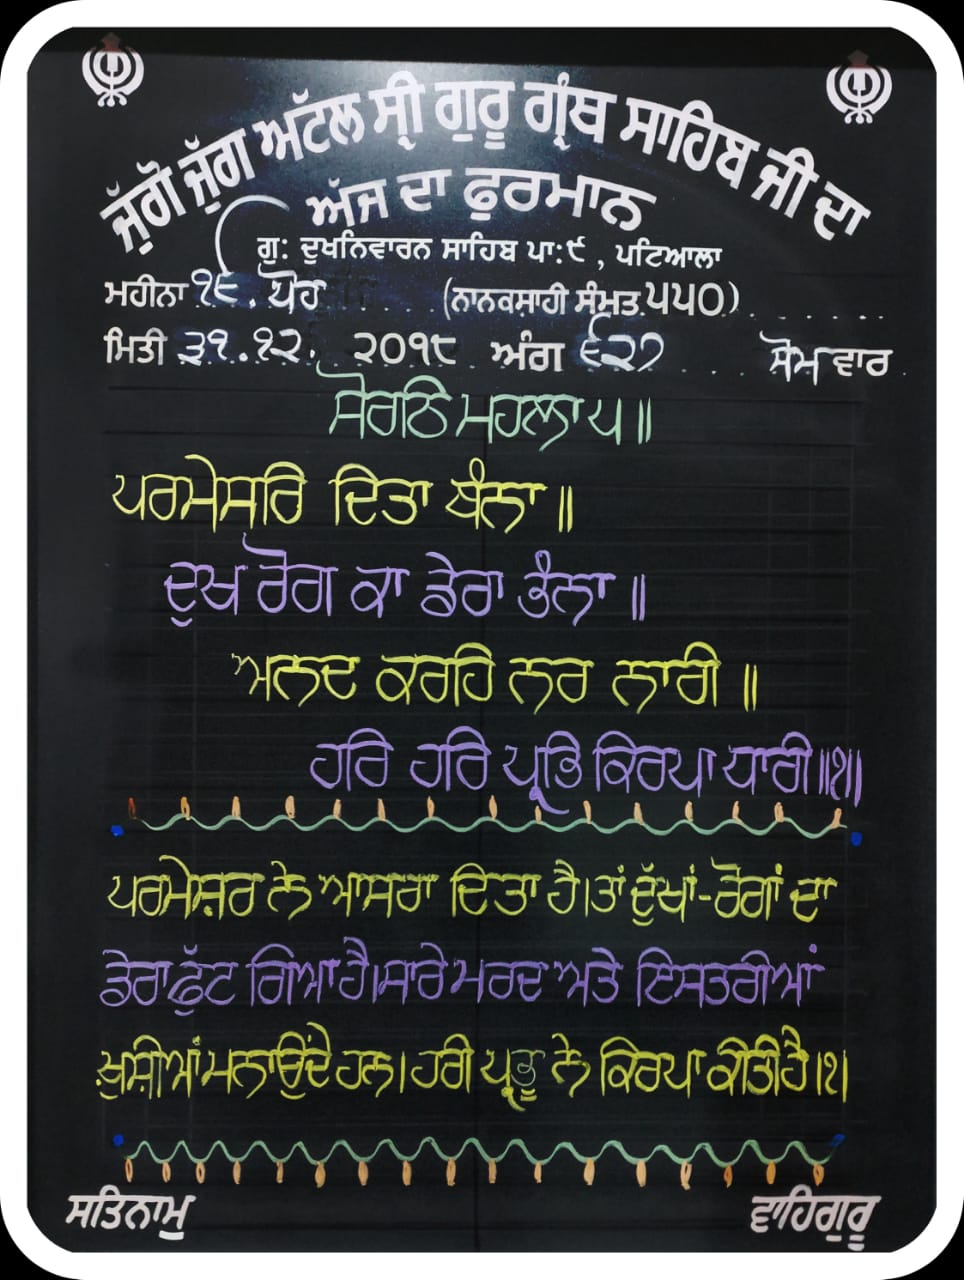 ਜੁੱਗੋ ਜੁੱਗ ਅਟੱਲ ਸ੍ਰੀ ਗੁਰੂ ਗ੍ਰੰਥ ਸਾਹਿਬ ਜੀ ਦਾ
ਅੱਜ ਦਾ ਫੁਰਮਾਨ
ਗੁ: ਦੁਖਨਿਵਾਰਨ ਸਾਹਿਬ ਪਾ:੯, ਪਟਿਆਲਾ
ਮਹੀਨਾ ੧੬. ਪੋਹ (ਨਾਨਕਸ਼ਾਹੀ ਸੰਮਤ ੫੫੦)
ਮਿਤੀ ੩੧.੧੨. ੨੦੧੮ ਅੰਗ ੬੨੭ ਸੋਮ ਵਾਰ
ਸੋਰਠਿ ਮਹਲਾ ੫ ॥
ਪਰਮੇਸਰਿ ਦਿਤਾ ਬੰਨਾ ॥
ਦੁਖ ਰੋਗ ਕਾ ਡੇਰਾ ਭੰਨਾ ॥
ਅਨਦ ਕਰਹਿ ਨਰ ਨਾਰੀ ॥
ਹਰਿ ਹਰਿ ਪ੍ਰਭਿ ਕਿਰਪਾ ਧਾਰੀ ॥੧॥
ਪਰਮੇਸ਼ਰ ਨੇ ਆਸਰਾ ਦਿਤਾ ਹੈ। ਤਾਂ ਦੁੱਖਾਂ-ਰੋਗਾਂ ਦਾ
ਡੇਰਾ ਫੁੱਟ ਗਿਆ ਹੈ। ਸਾਰੇ ਮਰਦ ਅਤੇ ਇਸਤਰੀਆਂ
ਖ਼ੁਸ਼ੀਆਂ ਮਨਾਉਂਦੇ ਹਨ। ਹਰੀ ਪ੍ਰਭੂ ਨੇ ਕਿਰਪਾ ਕੀਤੀ ਹੈ।੧।
ਸਤਿਨਾਮੁ ਵਾਹਿਗੁਰੂ